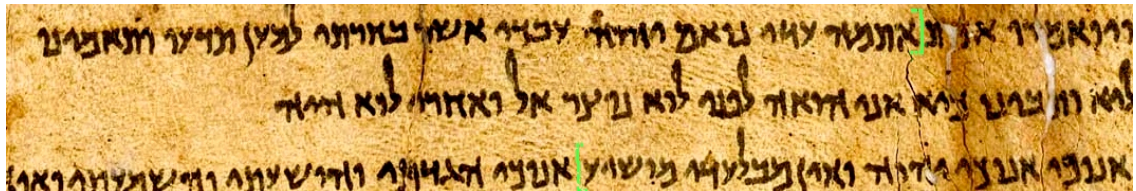 ויואמרו אמת אתמה עדי נואם יהוה ועבדי אשר בחרתי למען תדעו ותאמינו
ליא ותבינו כיא אני הואה לפני לוא נוצר אל ואחרי לוא היה
אנוכי אנוכי יהוה ואין מבלעדי מושיע אנוכי הגדתי והושעתי והשמעתי ואין